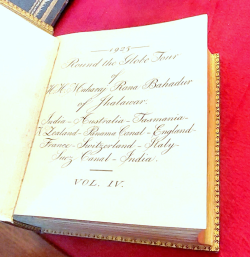 1925
Round the Globe Tour
of
H. H. Maharaj Rana Bahadur
of Jhalawar.
India - Australia - Tasmania -
Zealand - Panama Canal - England -
France - Switzerland - Italy -
Suez Canal - India.
VOL. IV.